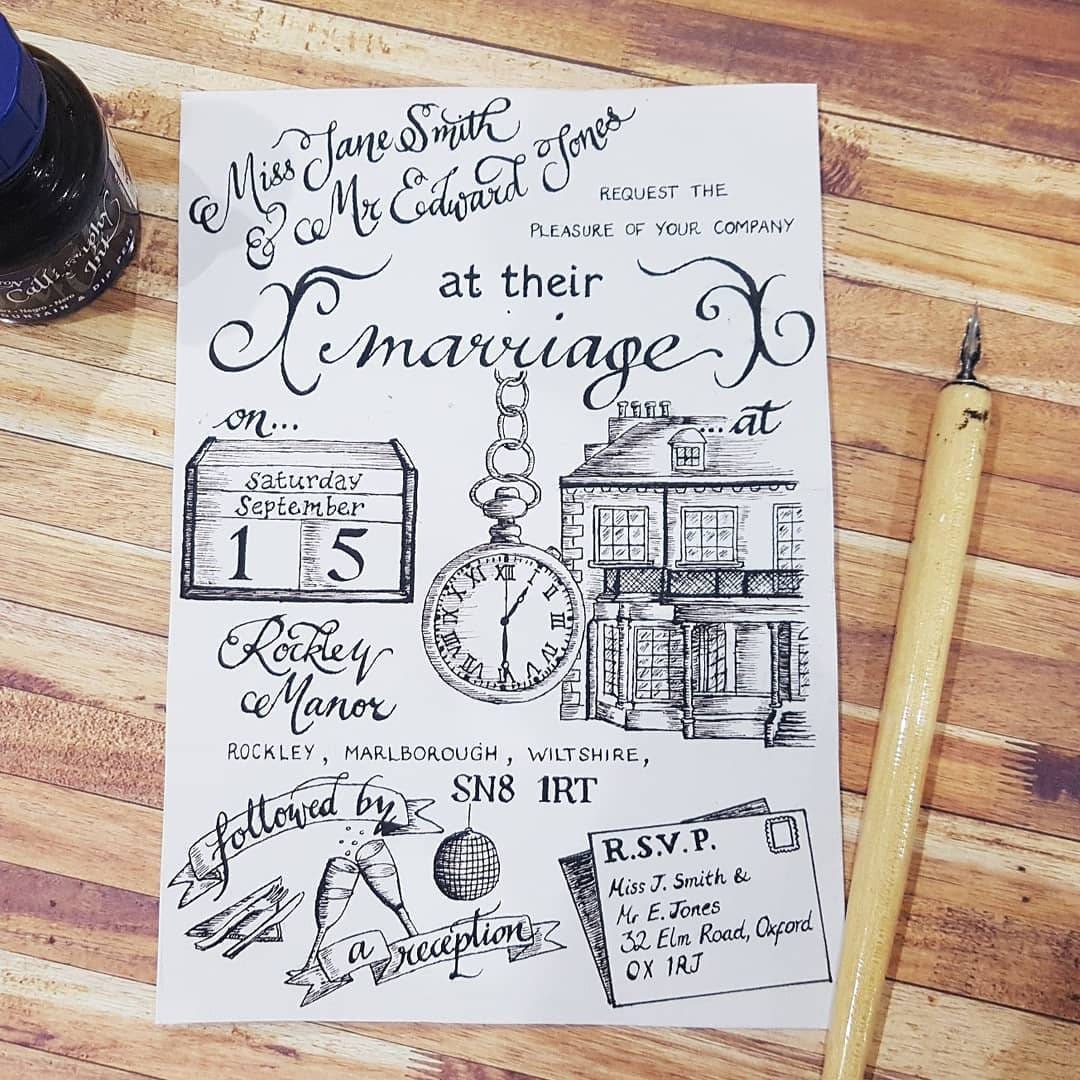 Miss Jane Smith
& Mr Edward Jones
REQUEST THE
PLEASURE OF YOUR COMPANY
at their
marriage
on...
...at
saturday
September
1 5
XII I II III IV V VII VIII IX X XI
Rockley
Manor
ROCKLEY, MARLBOROUGH, WILTSHIRE,
SN8 1RT
followed by
a reception
R.S.V.P.
Miss J. Smith &
Mr E. Jones
32 Elm Road, Oxford
OX 1RJ
Ink